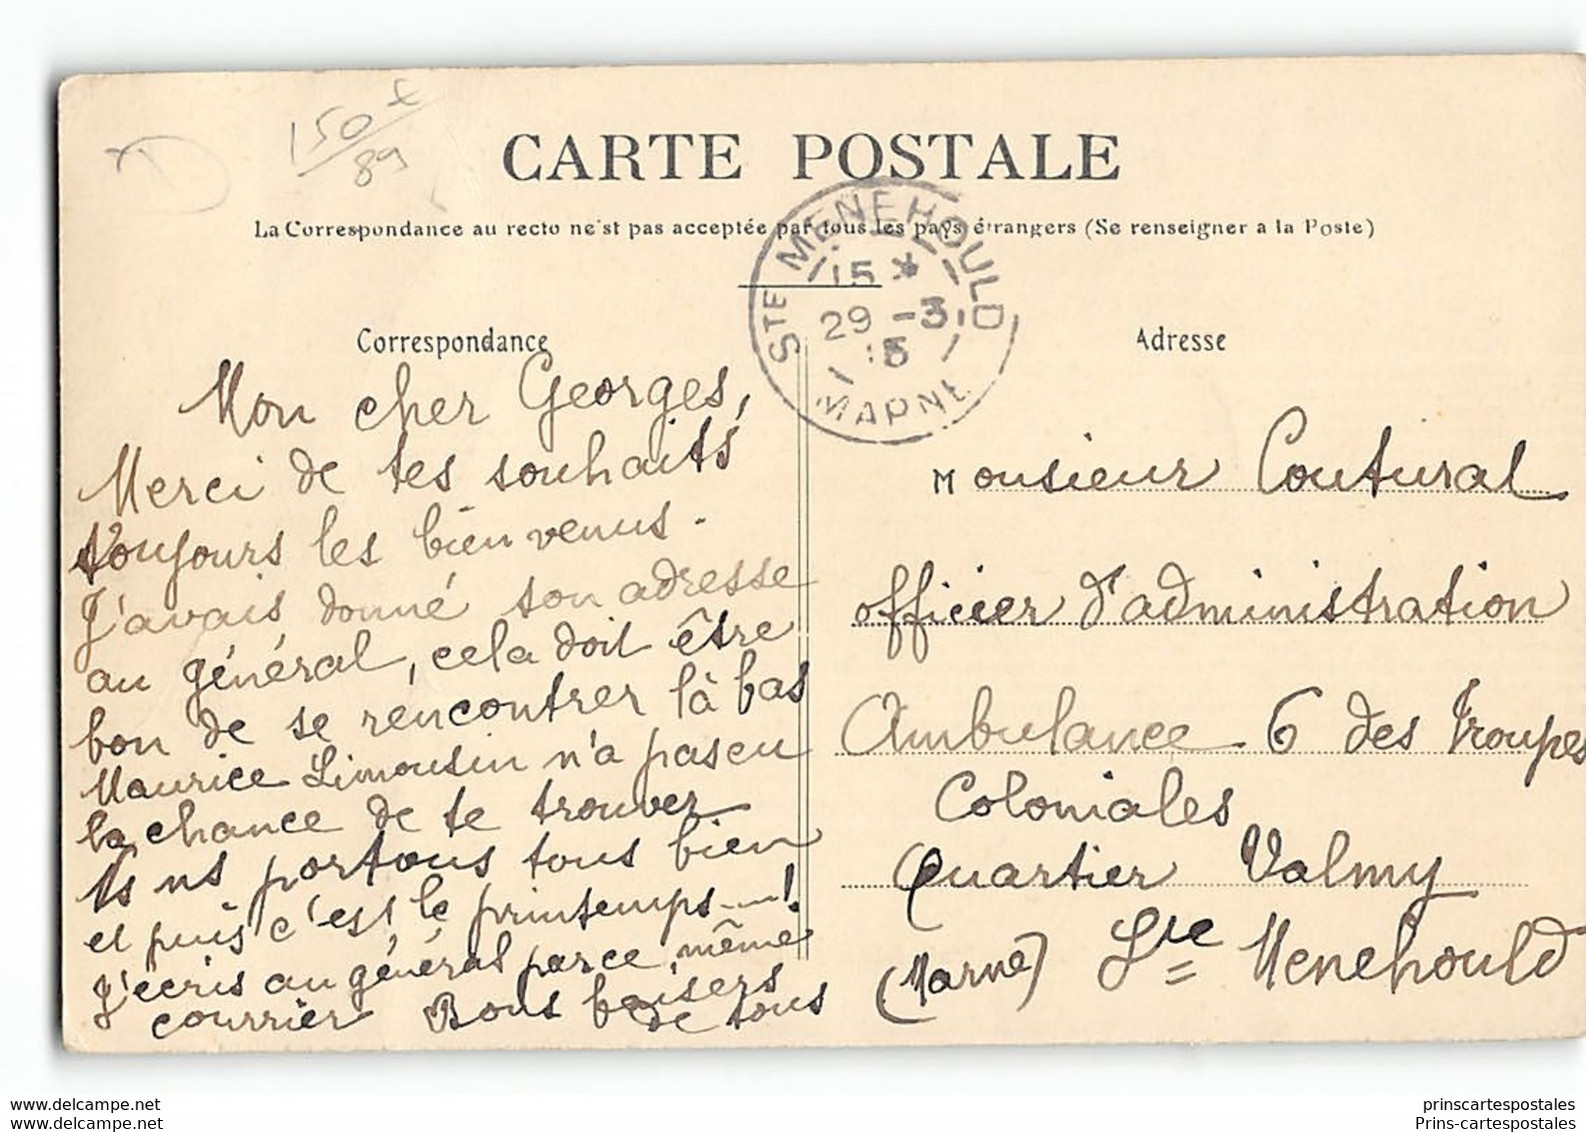 150 €
89
CARTE POSTALE
La Correspondance au recto ne'st pas acceptée par tous les pays étrangers (Se renseigner a la Poste)
STE MENEHOULD
15 *
29 - 3
15
MARNE
Correspondance
Mon cher Georges,
Merci de tes souhaits
toujours les bien venus.
J'avais donné ton adresse
au général, cela doit être
bon de se rencontrer là bas
Maurice Limousin n'a pas eu
la chance de te trouver
Ns ns portons tous bien
et puis c'est le printemps---!
J'écris au général parce même
courrier Bons baisers
de tous
Adresse
Monsieur Coutural
officier d'administration
Ambulance 6 des Troupes
Coloniales
Quartier Valmy
(Marne) Ste Menehould
www.delcampe.net
www.delcampe.net
prinscartespostales
Prins-cartespostales